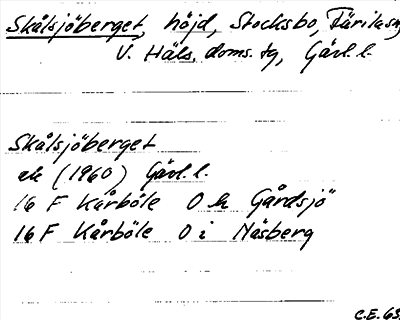 Skålsjöberget, höjd, Stocksbo, Färila sn,
V. Häls. doms. tg, Gävl. l.
Skålsjöberget
ek (1960) Gävl. l.
16 F Kårböle 0 h Gårdsjö
16 F Kårböle 0 i Näsberg
C.E. 63